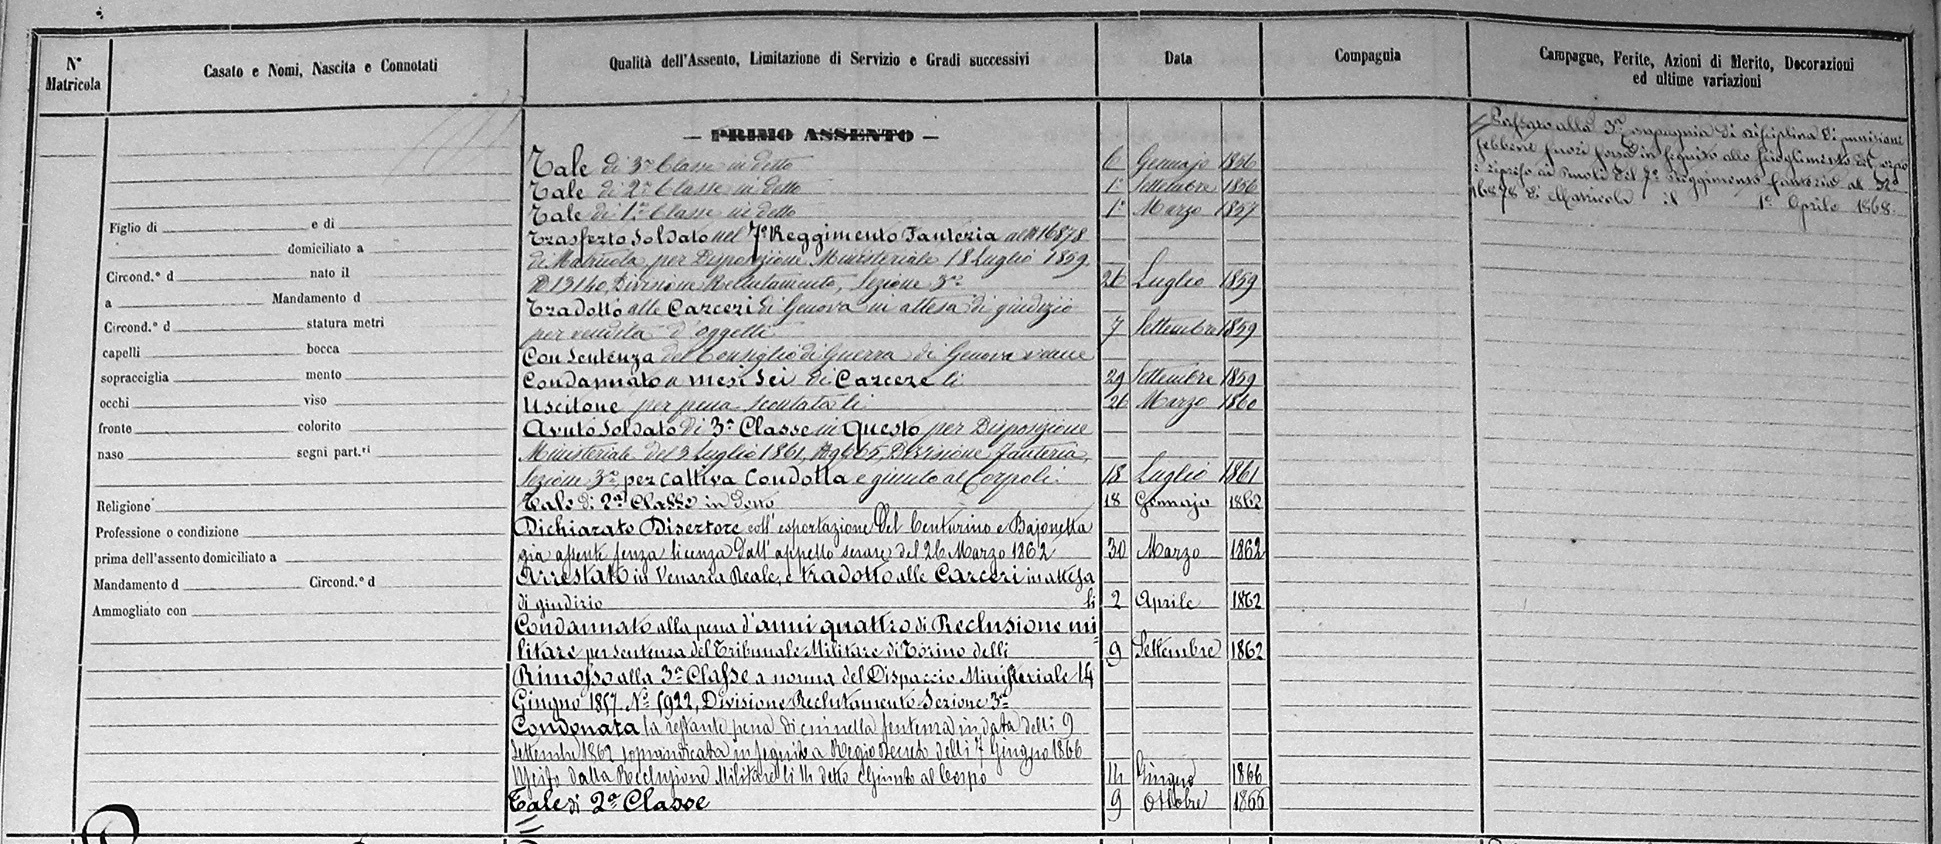 N° Matricola
Casato e Nomi, Nascita e Connotati
Qualità dell'Assento, Limitazione di Servizio e Gradi successivi
Data
Compagnia
Campagne, Ferite, Azioni di Merito, Decorazioni
ed ultime variazioni
— PRIMO ASSENTO —
Tale di 3ª Classe in detto 6 Gennajo 1856
Tale di 2ª Classe in detto 1° Settembre 1856
Tale di 1ª Classe in detto 1° Marzo 1857
Trasferto Soldato nel 7° Reggimento Fanteria al N 16878
di Matricola per Disposizione Ministeriale 18 Luglio 1859
N 13140, Divisione Reclutamento, Sezione 3ª 26 Luglio 1859
Tradotto alle Carceri di Genova in attesa di giudizio
per vendita d'oggetti 7 Settembre 1859
Con Sentenza del Consiglio di Guerra di Genova venne
Condannato a mesi sei di Carcere li 29 Settembre 1859
Uscitone per pena scontata li 26 Marzo 1860
Avuto Soldato di 3ª Classe in Questo per Disposizione
Ministeriale del 3 Luglio 1861, Divisione Fanteria,
Sezione 3ª per cattiva Condotta e giunto al Corpo li 18 Luglio 1861
Tale di 2ª Classe in detto 18 Gennajo 1862
Dichiarato Disertore coll'esportazione del Centurino e Bajonetta
già assente senza licenza dall'appello serale del 26 Marzo 1862 30 Marzo 1862
Arrestato in Venaria Reale, e tradotto alle Carceri in attesa
di giudizio li 2 Aprile 1862
Condannato alla pena d'anni quattro di Reclusione mi=
litare per sentenza del Tribunale Militare di Torino delli 9 Settembre 1862
Rimosso alla 3ª Classe a norma del Dispaccio Ministeriale 14
Giugno 1857 N° 5922, Divisione Reclutamento Sezione 3ª
Condonata la restante pena di cui nella sentenza in data delli 9
Settembre 1862 sopraindicata in seguito a Regio Decreto delli 7 Giugno 1866
Uscito dalla Reclusione Militare li 14 detto e Giunto al Corpo 14 Giugno 1866
Tale di 2ª Classe 9 Ottobre 1866
Passato alla 3ª Compagnia di disciplina di punizione
sebbene fuori forza in seguito allo scioglimento del corpo
e ripreso ai ruoli del 7° Reggimento fanteria al N°
16878 di Matricola il 1° Aprile 1868.
Figlio di e di
domiciliato a
Circond.° d nato il
a Mandamento d
Circond.° d statura metri
capelli bocca
sopracciglia mento
occhi viso
fronte colorito
naso segni part.ri
Religione
Professione o condizione
prima dell'assento domiciliato a
Mandamento d Circond.° d
Ammogliato con